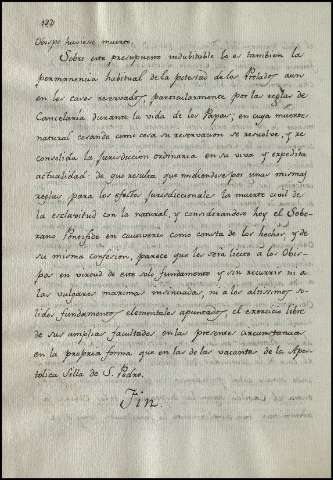 120
Obispo huviese muerto.
Sobre este presupuesto indubitable lo es tambien la
permanencia habitual de la potestad de los Prelados aun
en los casos reservados, particularmente por las reglas de
Cancelaria durante la vida de los Papas; en cuya muerte
natural cesando como cesa su reservacion se resuelve, y re-
consolida la Jurisdiccion ordinaria en su viva y expedita
actualidad: de que resulta que midiendose por unas mismas
reglas para los efectos Jurisdiccionales la muerte civil de
la esclavitud con la natural, y considerandose hoy el Sobe-
rano Pontifice en cautiverio como consta de los hechos, y de
su misma confesion, parece que les será licito a los Obis-
pos en virtud de este solo fundamento y sin recurrir ni a
las vulgares maximas insinuadas, ni a los altisimos so-
lidos fundamentos elementales apuntados, el exercicio libre
de sus amplias facultades en las presentes circunstancias
en la propria forma que en las de vacante de la Apos-
tolica Silla de S. Pedro.
Fin.